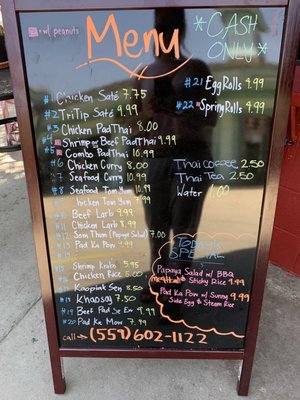 w/ peanuts
Menu
*CASH
ONLY*
#1 Chicken Saté 7.75
#2 TriTip Saté 9.99
#3 Chicken Pad Thai 8.00
#4 Shrimp or Beef Pad Thai 9.99
#5 Combo Pad Thai 10.99
#6 Chicken Curry 8.00
#7 Seafood Curry 10.99
#8 Seafood Tom Yum 10.99
Chicken Tom Yum 7.99
Beef Larb 9.99
Chicken Larb 8.99
#12 Som Thum (Papaya Salad) 7.00
#13 Pad Ka Pow
Shrimp Krab 5.95
Chicken Rice 5.00
Kaopink Sen 8.50
Khaosoy 7.50
#19 Beef Pad Se Ew 9.99
#20 Pad Ka Mow 7.99
call→(559)602-1122
#21 Egg Rolls 9.99
#22 Spring Rolls 9.99
Thai Coffee 2.50
Thai Tea 2.50
Water 1.00
Today's
SPECIAL
Papaya Salad w/ BBQ
Meatball & Sticky Rice 9.99
Pad Ka Pow w/ Sunny 9.99
Side Egg & Steam Rice